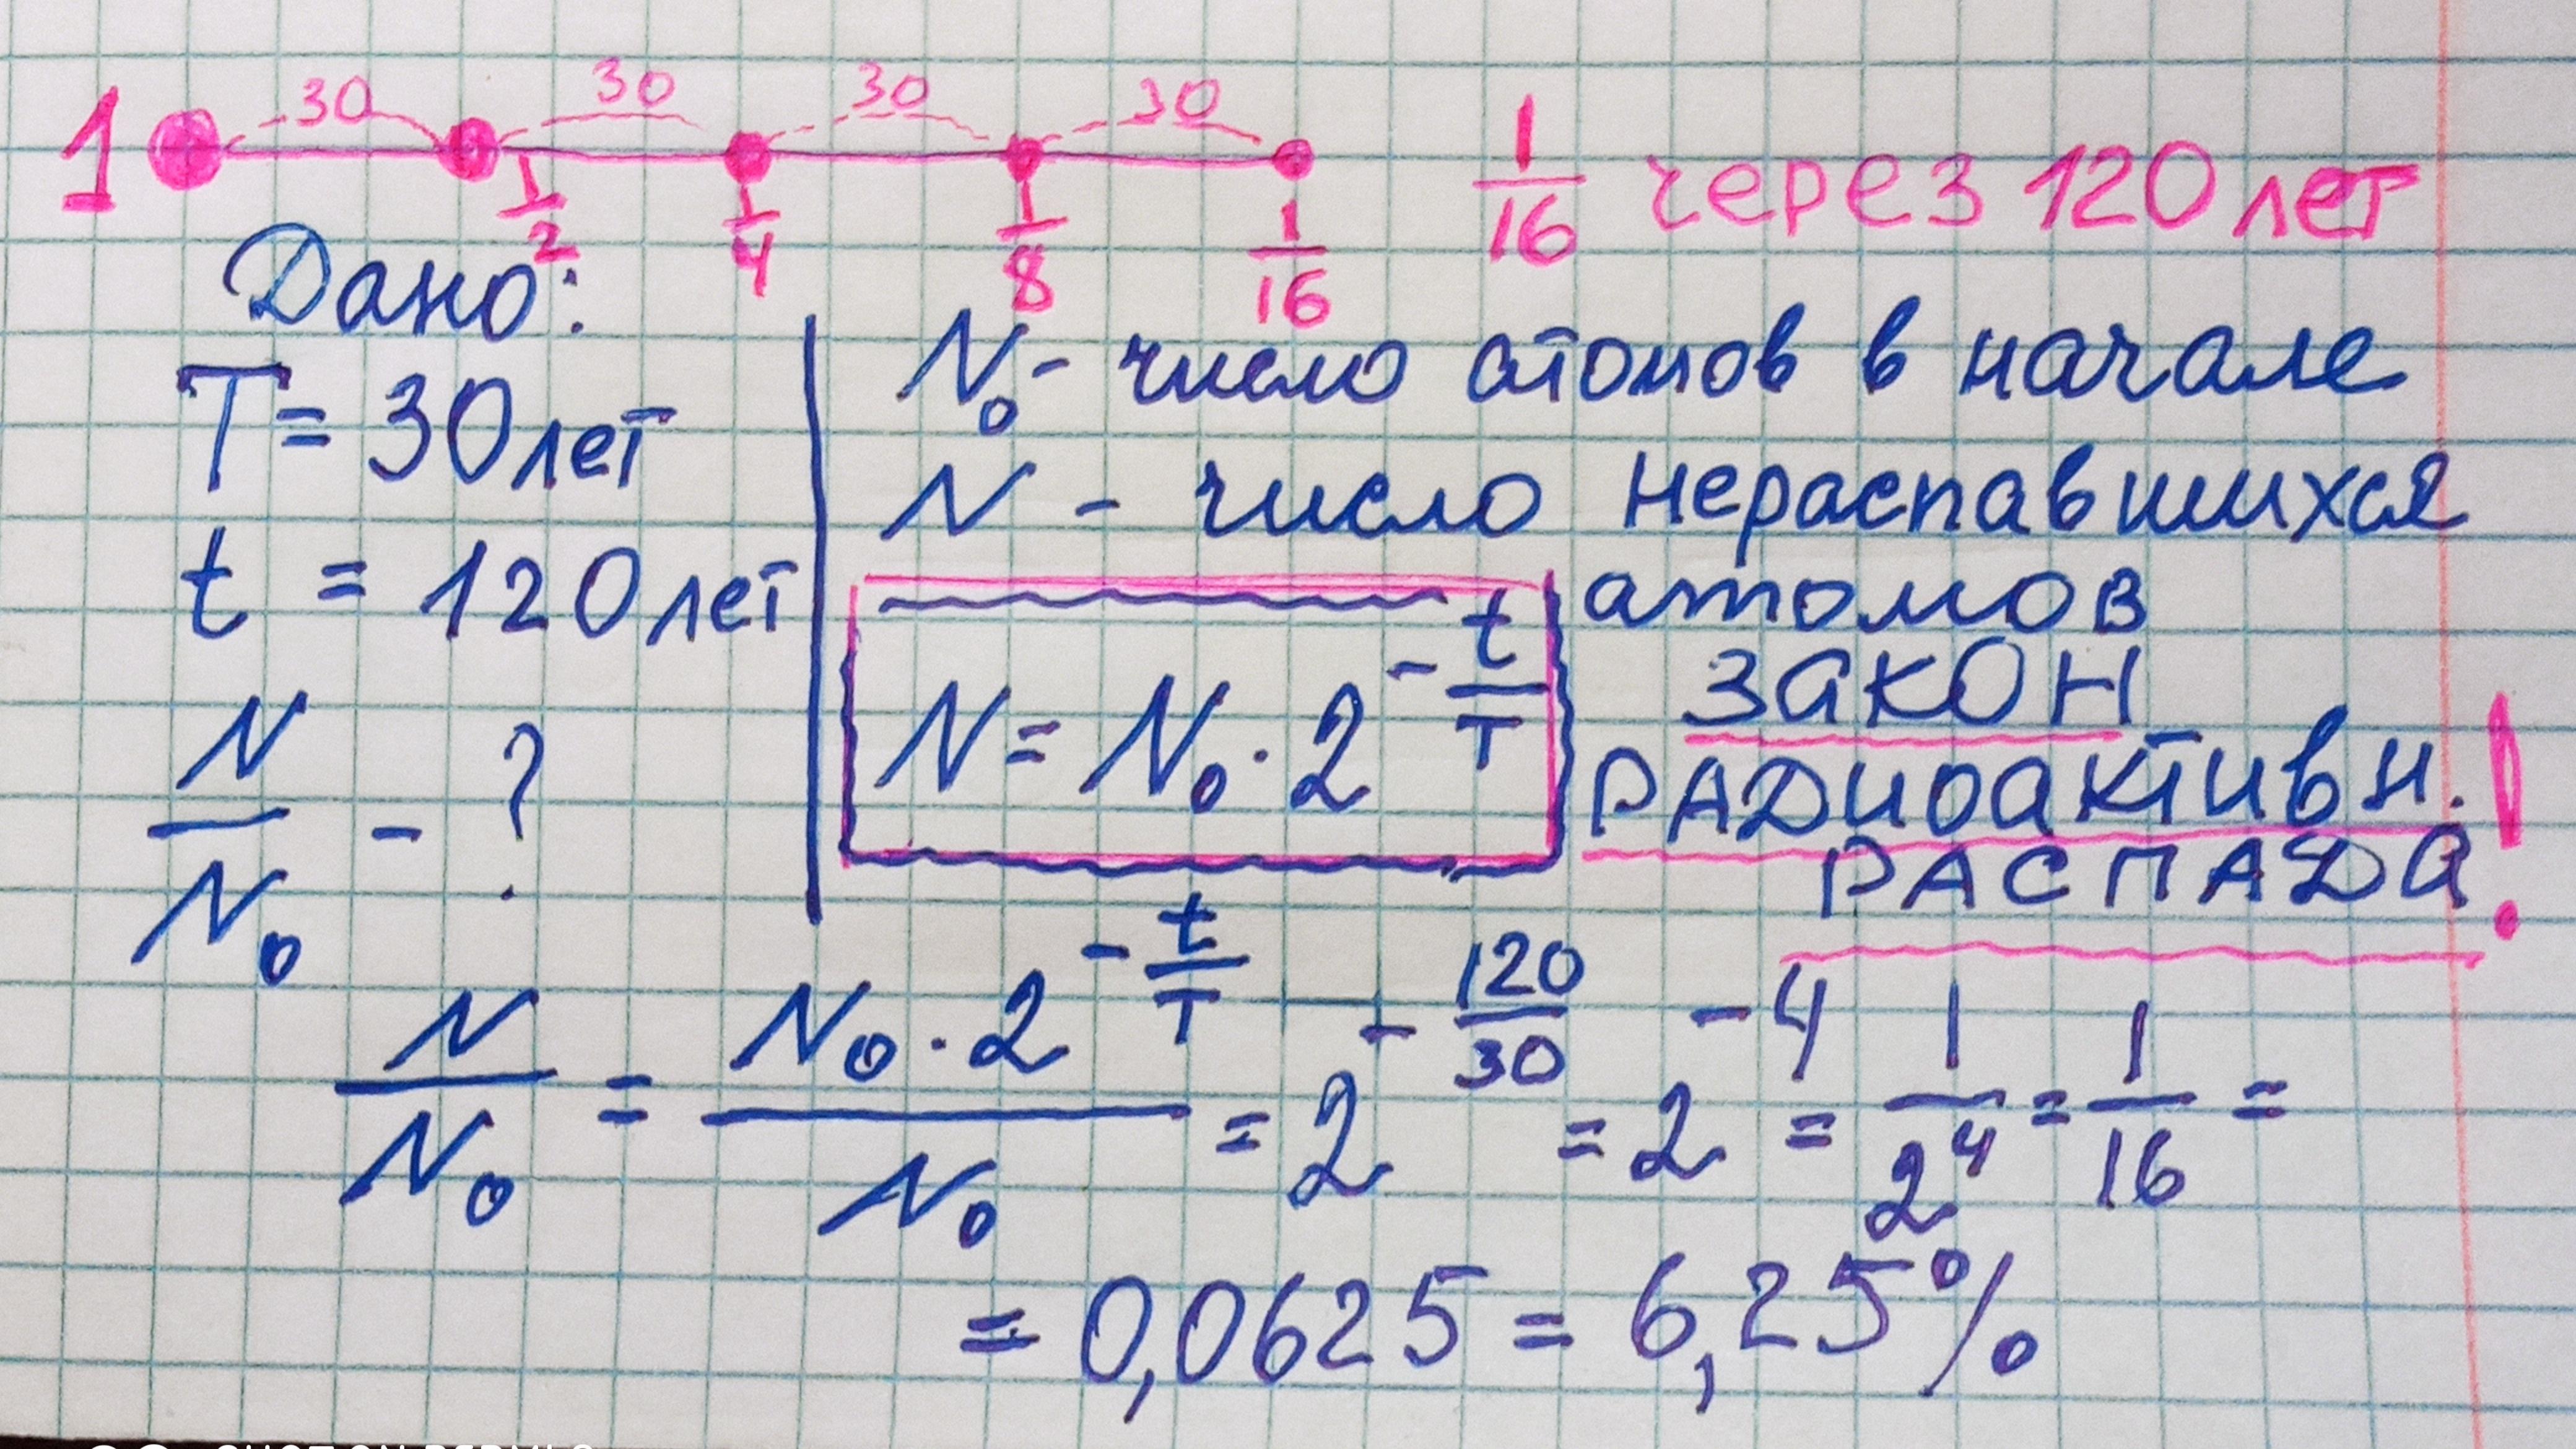 1 30 30 30 30
1/2 1/4 1/8 1/16
1/16 через 120 лет
Дано:
T = 30 лет
t = 120 лет
N/N₀ - ?
N₀ - число атомов в начале
N - число нераспавшихся
атомов
N = N₀ · 2^(-t/T)
ЗАКОН
РАДИОАКТИВН.
РАСПАДА !
N/N₀ = (N₀ · 2^(-t/T))/N₀ = 2^(-120/30) = 2^(-4) = 1/2^4 = 1/16 =
= 0,0625 = 6,25%